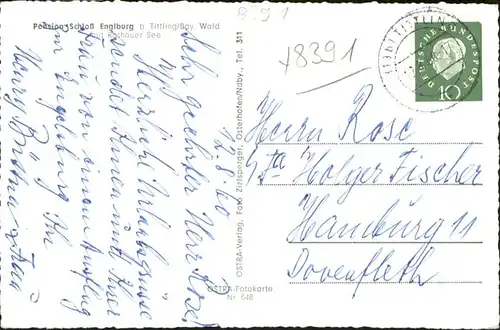 Pension-Schloß Englburg b. Tittling/Bay. Wald
mit Rothauer See
B 91
x8391
(13b) TITTLING
DEUTSCHE BUNDESPOST
10
12.8.60
Sehr geehrter Herr Rose!
Herrliche Urlaubsgrüße
sendet Ihnen und Ihrer
Frau von einem Ausflug
in Englburg Ihr
Georg u. Frau
OSTRA-Verlag, Foto Zirlsperger, Osterhofen/Naby., Tel. 311
OSTRA-Fotokarte
Nr. 648
Herrn Rose
Holger Fischer
Hamburg 11
Dovenfleth